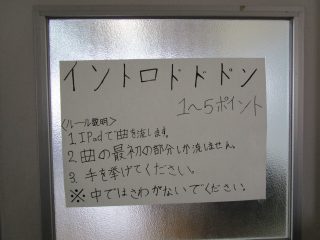 イントロドドドン
1〜5ポイント
〈ルール説明〉
1. IPadで曲を流します。
2. 曲の最初の部分しか流しません。
3. 手を挙げてください。
※中ではさわがないでください。